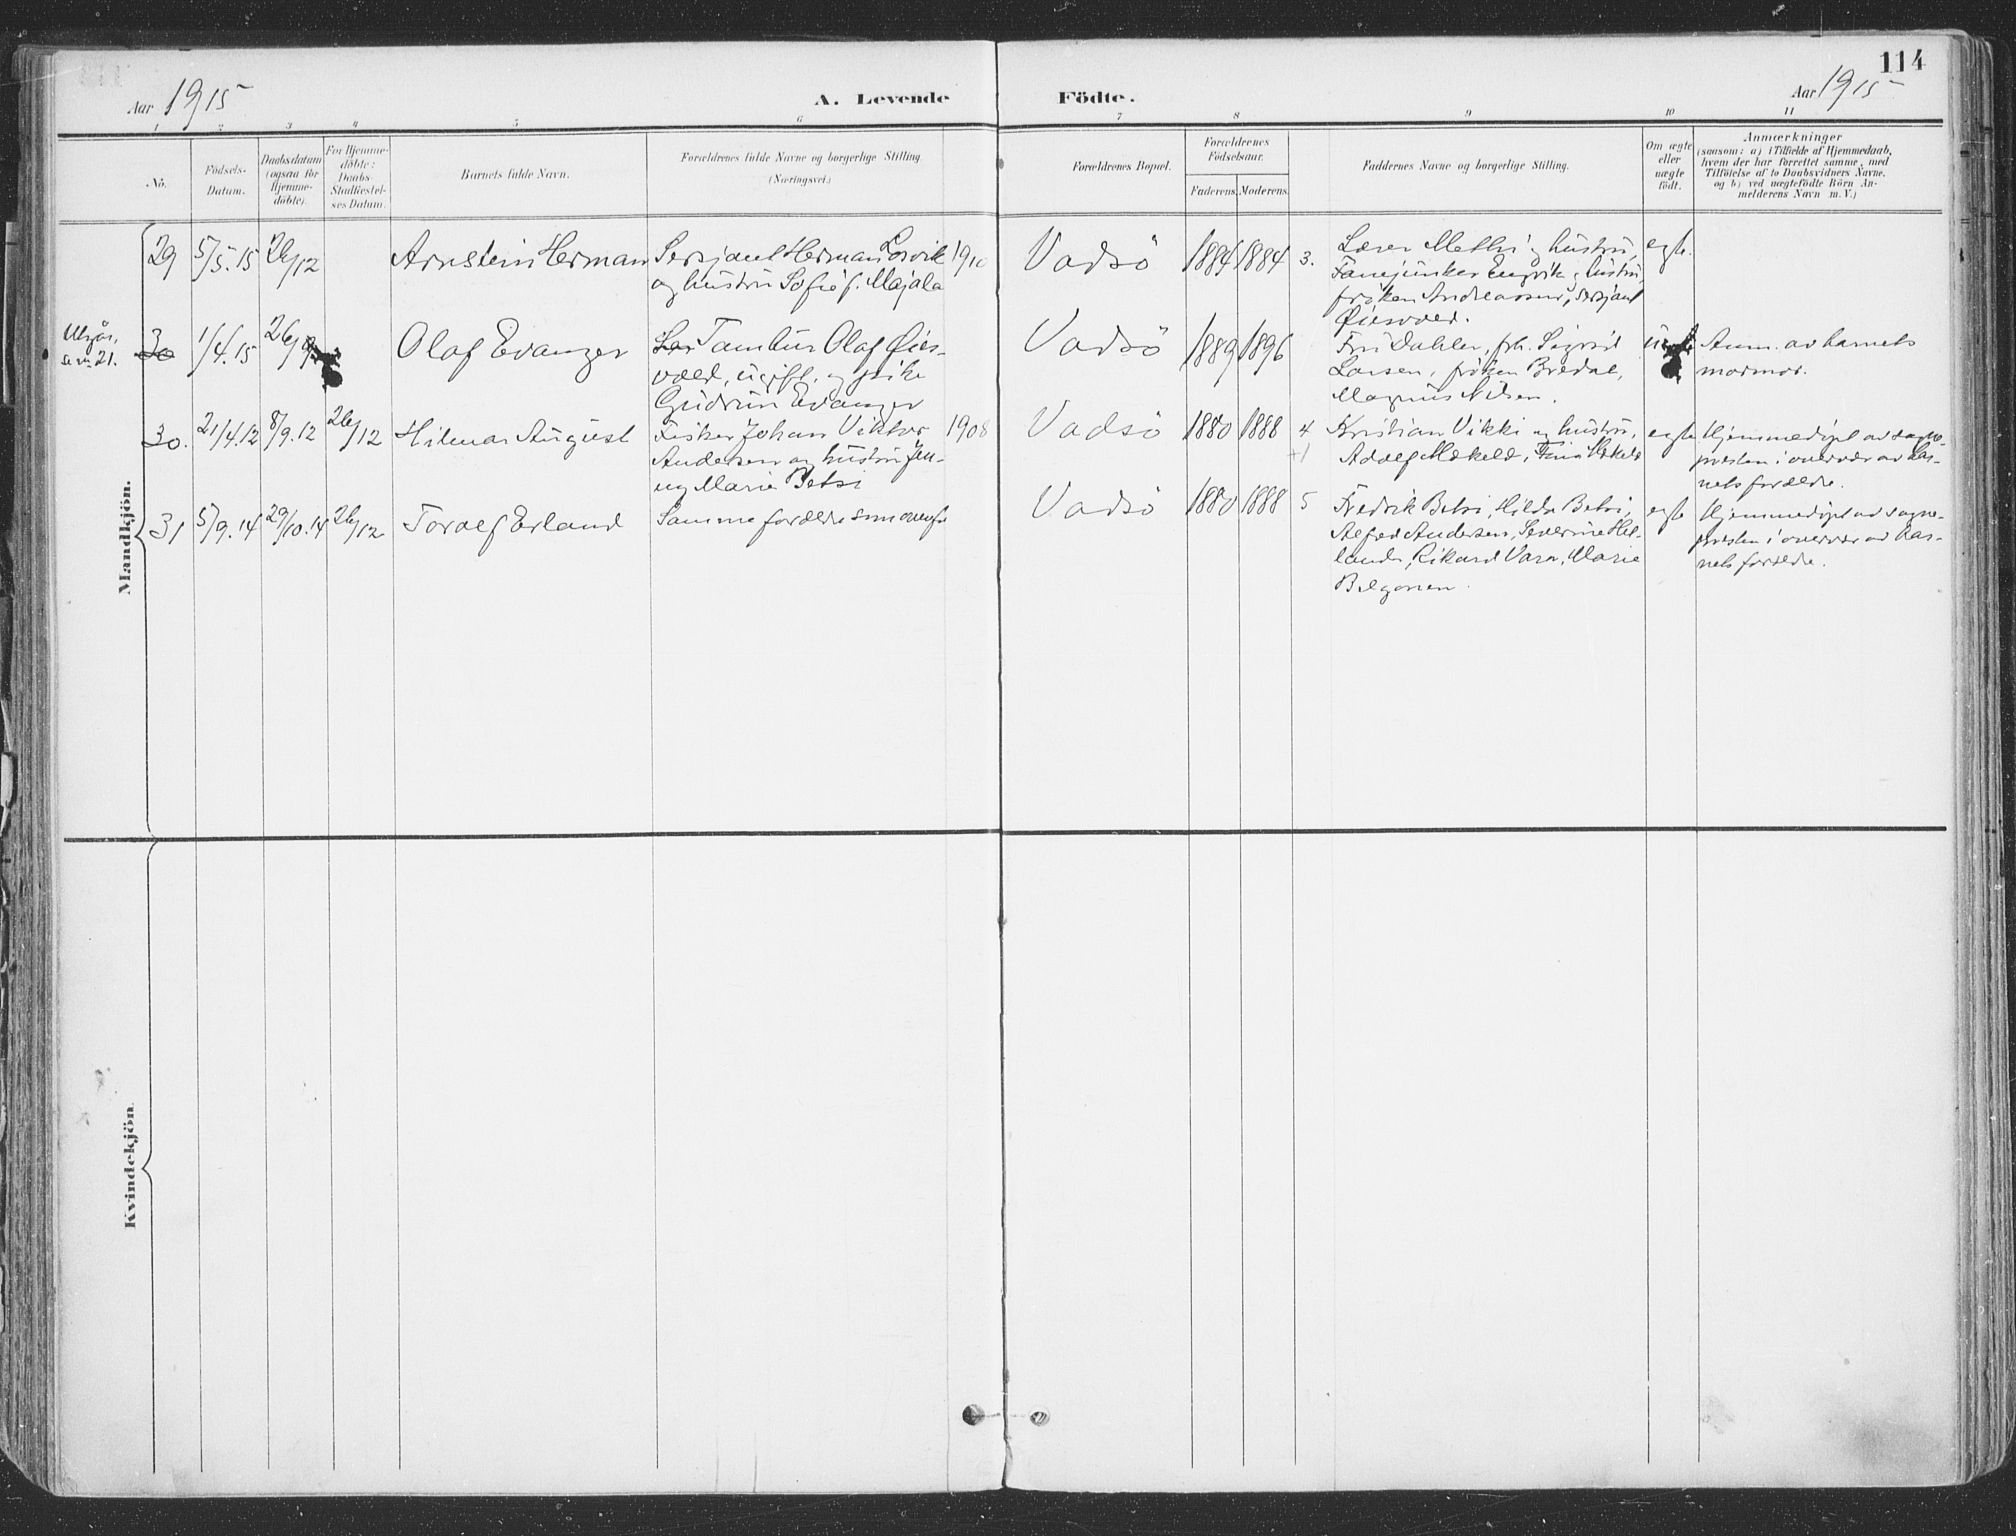 114
Aar 1915
A. Levende Födte.
Aar 1915
1 2 3 4 5 6 7 8 9 10 11
No.
Födsels-
Datum.
Daabsdatum
(ogsaa for
Hjemme-
döbte).
For Hjemme-
döbte:
Daabs-
Stadfæstel-
ses Datum.
Barnets fulde Navn.
Forældrenes fulde Navne og borgerlige Stilling.
(Næringsvei.)
Forældrenes Bopæl.
Forældrenes
Födselsaar.
Faderens. Moderens.
Faddernes Navne og borgerlige Stilling.
Om ægte
eller
uægte
födt.
Anmærkninger
(saasom: a) i Tilfælde af Hjemmedaab,
hvem der har forrettet samme, med
Tilföielse af to Daabsvidners Navne,
og b) ved uægtefödte Börn An-
melderens Navn m. V.)
Mandkjön.
29 5/5.15 26/12 Arnstein Herman
Sersjant Herman 1910
og hustru Sofie f. Majala
Vadsö 1884 1884 3.
Lærer Methi og hustru,
Fanejunker Engvik og hustru,
fröken Andreassen, sersjant
Öiesvold.
egte.
30 1/4.15 26/9 Olaf Evanger
Tambur Olaf Öies-
vold, ugift, og pike
Gudrun Evanger
Vadsö 1889 1896
Fru Dahler, frk. Sigrid
Larsen, fröken Bredal,
Magnus Nilsen.
Anm. av barnets
mormor.
30. 21/4.12 8/9.12 26/12 Hilmar August
Fisker Johan Viktor 1908
Andersen og hustru Jen-
ny Marie Betsi
Vadsö 1880 1888 4
+1
Kristian Vikki og hustru,
Adolf Mækelæ,
egte
Hjemmedöpt av sogne-
presten i overvær av bar-
nets forældre.
31 5/9.14 29/10.14 26/12 Toralf Erland
Samme forældre som ovenfor
Vadsö 1880 1888 5
Fredrik Betsi, Hilda Betsi,
Alfred Andersen, Severine Hel-
lander, Rikard Vara, Marie
egte
Hjemmedöpt av sogne-
presten i overvær av bar-
nets forældre.
Kvindekjön.